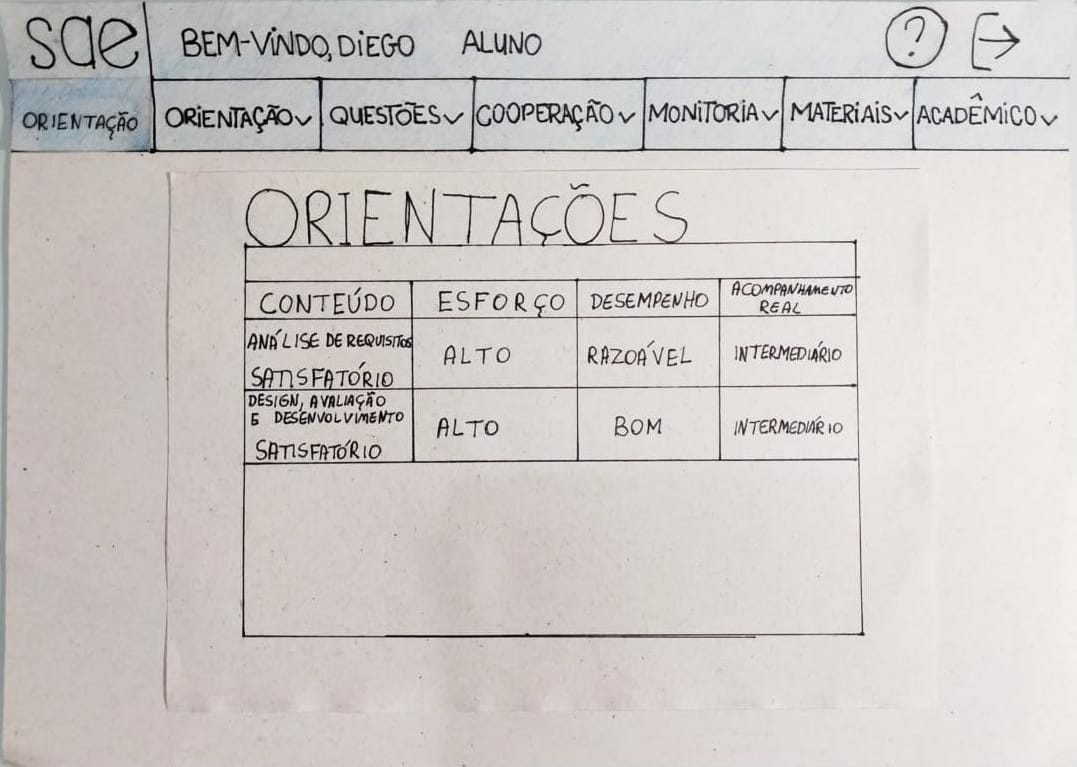 sae BEM-VINDO, DIEGO ALUNO ?
ORIENTAÇÃO ORIENTAÇÃO QUESTÕES COOPERAÇÃO MONITORIA MATERIAIS ACADÊMICO
ORIENTAÇÕES
CONTEÚDO ESFORÇO DESEMPENHO ACOMPANHAMENTO
REAL
ANÁLISE DE REQUISITOS
SATISFATÓRIO ALTO RAZOÁVEL INTERMEDIÁRIO
DESIGN, AVALIAÇÃO
E DESENVOLVIMENTO
SATISFATÓRIO ALTO BOM INTERMEDIÁRIO